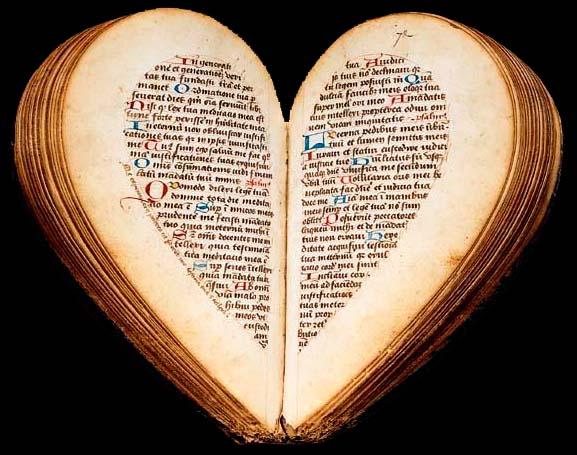 In generati
one et generatione veri
tas tua fundasti terrā et per
manet Ordinatione tua p
severat dies qm̄ oīa serviūt tibi
Nisi q lex tua meditatio mea est
tunc forte perissē in humilitate mea
In eternū non obliviscar iustifi
cationes tuas qr in ipsis vivificasti me
Tuus sum ego salvū me fac qm̄
iustificationes tuas exquisivi
Omnis consūmationis vidi finem
latū mādatū tuū nimis
Quomodo dilexi legē tuā
domine tota die medita
tio mea ē Sup inimicos meos
prudentē me fecisti mandato
tuo quia in eternū michi ē
Sup om̄s docentes me in
tellexi quia testimonia
tua meditatio mea ē
Sup senes intellexi
quia mādata tua
quesivi Ab omī
via mala pro
hibui pedes
meos vt
custodi
am
72
tua A iudici
is tuis nō declinavi qr
tu legem posuisti m Quā
dulcia faucibus meis eloqa tua
super mel ori meo A mādatis
tuis intellexi propterea odivi om
nem viam iniquitatis
Lucerna pedibus meis verbū
tuū et lumen semitis meis
Iuravi et statui custodire iudici
a iusticie tue Humiliatus sū vsq
quaq dn̄e vivifica me secundum
verbū tuū Volūtaria oris mei be
neplacita fac dn̄e et iudicia tua
doce me Aīa mea ī manibus
meis semp et legem tuā nō sum
oblitus Posuerūt peccatores
laqueū michi et de mādatis
tuis non erravi Here
ditate acquisivi testimonia
tua in eternū qr exul
tatio cord mei sunt
Inclinavi cor
meū ad faciēdas
iustificationes
tuas in eter
num prop
ter ret
butio
nē